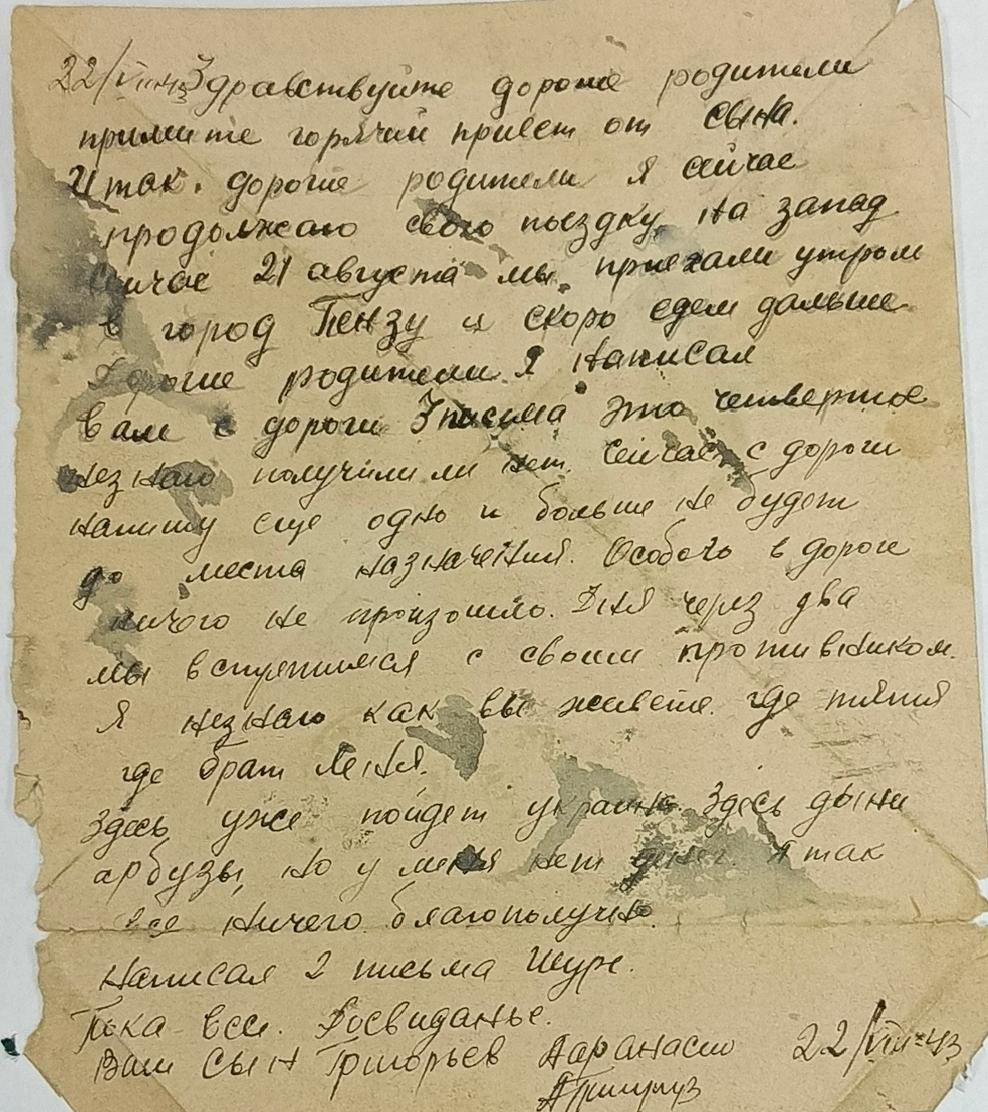 22/VIII-43 Здравствуйте дорогие родители
примите горячий привет от сына.
Итак. дорогие родители я сейчас
продолжаю свою поездку на запад
Сейчас 21 августа мы приехали утром
в город Пензу и скоро едем дальше
Дорогие родители я написал
вам с дороги 3 письма это четвертое
незнаю получили ли нет. Сейчас с дороги
напишу еще одно и больше не будет
до места назначения. Особого в дороге
ничего не произошло. Дня через два
мы встретимся с своим противником.
Я незнаю как вы живете где тятя
где брат Леня.
Здесь уже пойдет украина здесь дыни
арбузы, но у меня нет денег. А так
все ничего благополучно.
Написал 2 письма Шуре.
Пока все. Досвиданье.
Ваш сын Григорьев 22/VIII-43